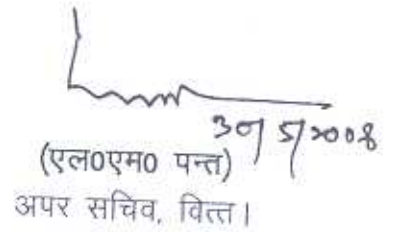 30/5/2008
(एल0एम0 पन्त)
अपर सचिव, वित्त।